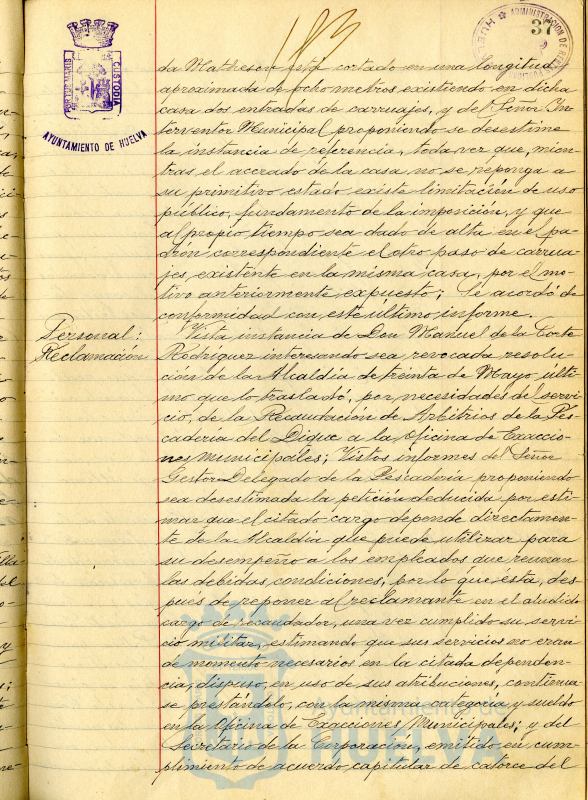 183
37
PORTUS MARIS CUSTODIA
AYUNTAMIENTO DE HUELVA
ADMINISTRACION DE RENTAS
HUELVA
da Matheson está cortado en una longitud
aproximada de ocho metros existiendo en dicha
casa dos entradas de carruajes, y del Señor In-
terventor Municipal proponiendo se desestime
la instancia de referencia, toda vez que, mien-
tras el acerado de la casa no se reponga a
su primitivo estado existe limitación de uso
público, fundamento de la imposición, y que
al propio tiempo sea dado de alta en el pa-
drón correspondiente el otro paso de carrua-
jes existente en la misma casa, por el mo-
tivo anteriormente expuesto; Se acordó de
conformidad con este último informe.
Personal:
Reclamación
Vista instancia de Don Manuel de la Corte
Rodríguez interesando sea revocada resolu-
ción de la Alcaldía de treinta de Mayo, últi-
mo que lo trasladó, por necesidades del servi-
cio, de la Recaudación de Arbitrios de la Pes-
cadería del Dique a la Oficina de Exaccio-
nes Municipales; Vistos informes del Señor
Gestor Delegado de la Pescadería proponiendo
sea desestimada la petición deducida por esti-
mar que el citado cargo depende directamen-
te de la Alcaldía que puede utilizar para
su desempeño a los empleados que reunan
las debidas condiciones, por lo que esta, des-
pués de reponer al reclamante en el aludido
cargo de recaudador, una vez cumplido su servi-
cio militar, estimando que sus servicios no eran
de momento necesarios en la citada dependen-
cia, dispuso, en uso de sus atribuciones, continua-
se prestándolo, con la misma categoría y sueldo
en la Oficina de Exacciones Municipales; y del
Secretario de la Corporación, emitido en cum-
plimiento de acuerdo capitular de catorce del
Ayuntamiento de
HUELVA